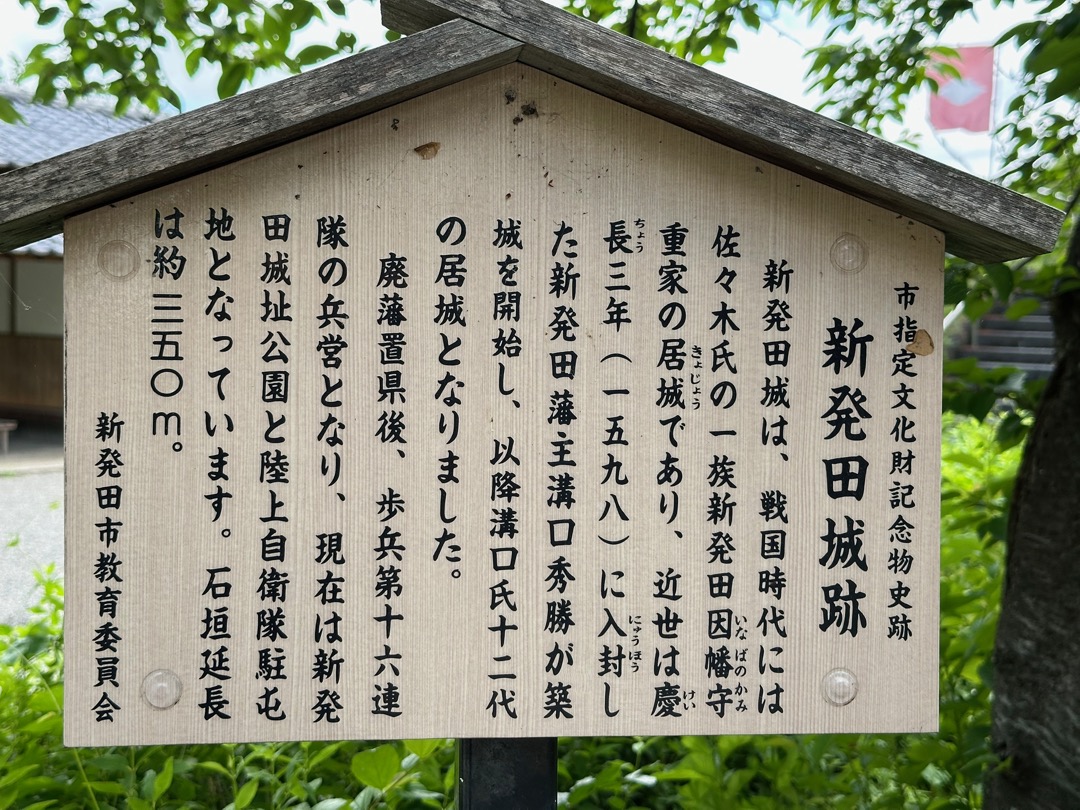 市指定文化財記念物史跡
新発田城跡
新発田城は、戦国時代には
佐々木氏の一族新発田因幡守
いな ばの かみ
重家の居城であり、近世は慶
きょじょう
けい
長三年（一五九八）に入封し
ちょう
にゅうほう
た新発田藩主溝口秀勝が築
城を開始し、以降溝口氏十二代
の居城となりました。
廃藩置県後、歩兵第十六連
隊の兵営となり、現在は新発
田城址公園と陸上自衛隊駐屯
地となっています。石垣延長
は約三五〇ｍ。
新発田市教育委員会